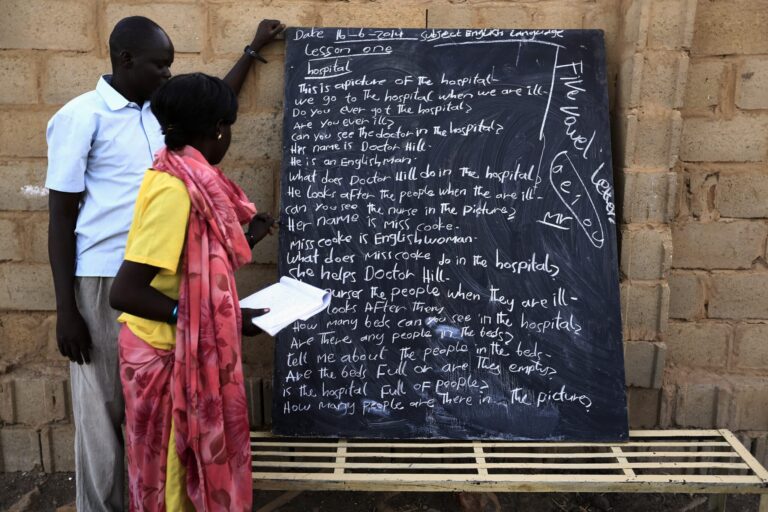 Date 16-6-2014 Subject English Language
Lesson one
hospital
This is apicture of the hospital-
we go to the hospital when we are ill-
Do you ever got the hospital?
Are you ever ill?
can you see the doctor in the hospital?
His name is Doctor Hill.
He is an Englishman.
what does Doctor Hill do in the hospital
He looks after the people when the are ill-
can you see the nurse in the picture?
Her name is Miss Cooke.
Miss cooke is Englishwoman.
what does Miss cooke do in the hospital?
She helps Doctor Hill.
the people when they are ill-
looks After them
How many beds can you see in the hospital?
Are there any people in the beds?
tell me about the people in the beds-
Are the beds Full or are They empty?
is the hospital Full of people?
How many people are there in the picture?
Five Vowel Lesson
a, e, i, o, u
Mr